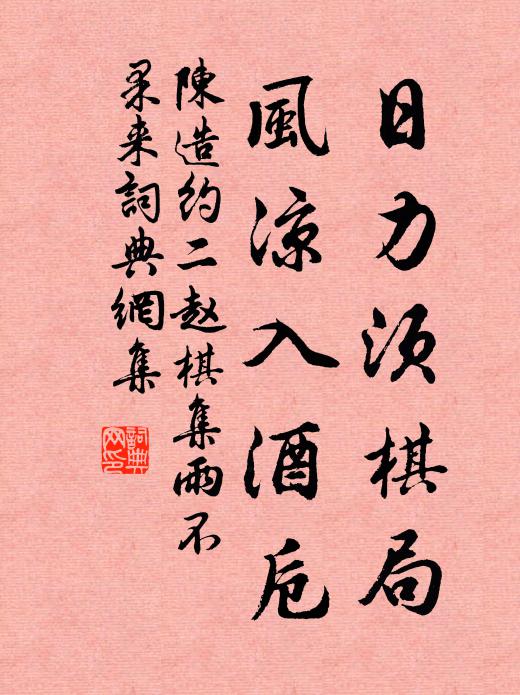 日力須棋局
風涼入酒卮
陳造約二赵棋集雨不
果来詞典網集
詞典
网印